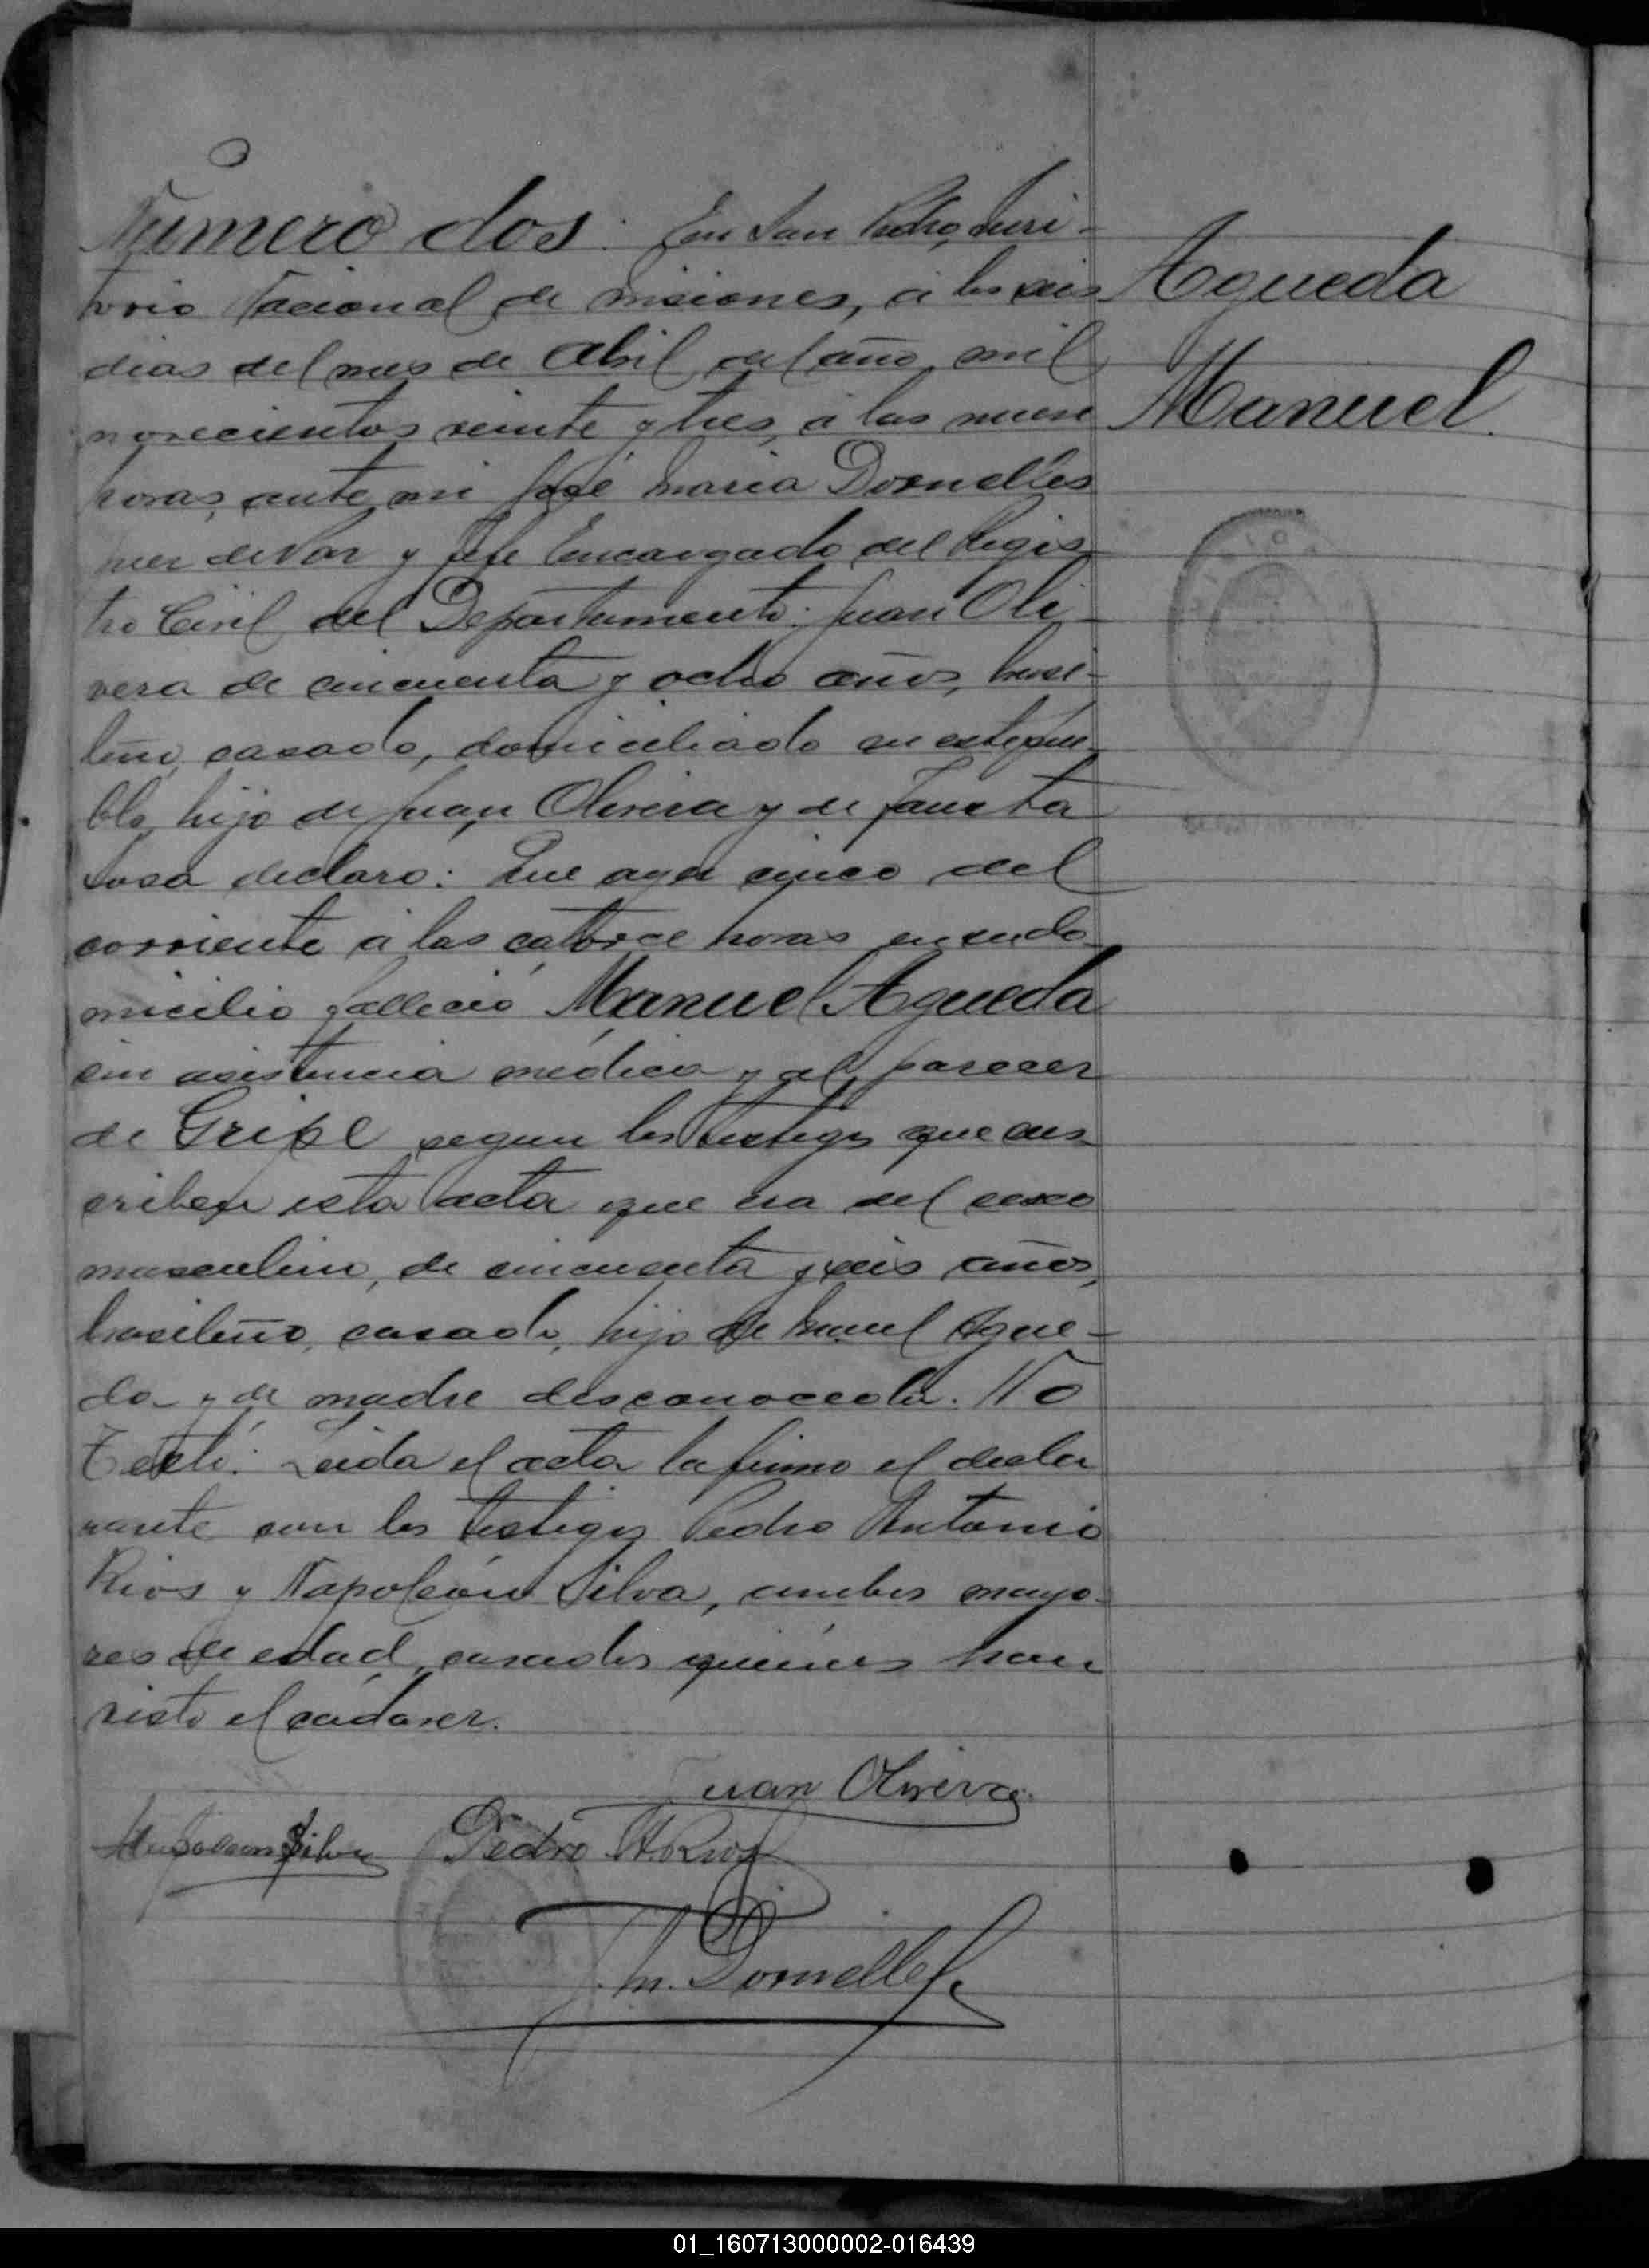 Número dos: En San Pedro, Terri-
torio Nacional de Misiones, á los seis
dias del mes de Abril del año mil
novecientos veinte y tres, á las nueve
horas, ante mi José Maria Dornelles
Juez de Paz y Jefe Encargado del Regis
tro Civil del Departamento: Juan Oli-
vera de cincuenta y ocho años, brasi-
leño, casado, domiciliado en este pue-
blo, hijo de Juan Olivera y de Fausta
Sosa declaro: Que ayer cinco del
corriente á las catorce horas en su do-
micilio falleció Manuel Agueda
sin asistencia médica y al parecer
de Gripe segun los testigos que sus-
criben esta acta que era del sexo
masculino, de cincuenta y seis años,
brasileño, casado, hijo de Manuel Ague-
da y de madre desconoceda. No
Testó: Leida el acta la firmo el decla
rante con los testigos Pedro Antonio
Rios y Napoleón Silva, ambos mayo-
res de edad, casados quiénes han
visto el cadáver.
Juan Olivera
Napoleon Silva Pedro A. Rios
J. M. Dornelles
Agueda
Manuel
01_160713000002-016439